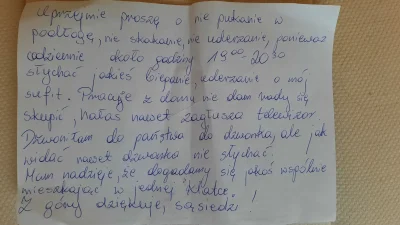 Uprzejmie proszę o nie pukanie w
podłogę, nie skakanie, nie uderzanie, ponieważ
codziennie około godziny 19⁰⁰-20³⁰
słychać jakieś bieganie, uderzanie o mój
sufit. Pracuję z domu nie dam rady się
skupić, hałas nawet zagłusza telewizor
Dzwoniłam do państwa do dzwonka, ale jak
widać nawet dzwonka nie słychać.
Mam nadzieję, że dogadamy się jakoś wspólnie
mieszkając w jednej klatce.
Z góry dziękuję, sąsiedzi!